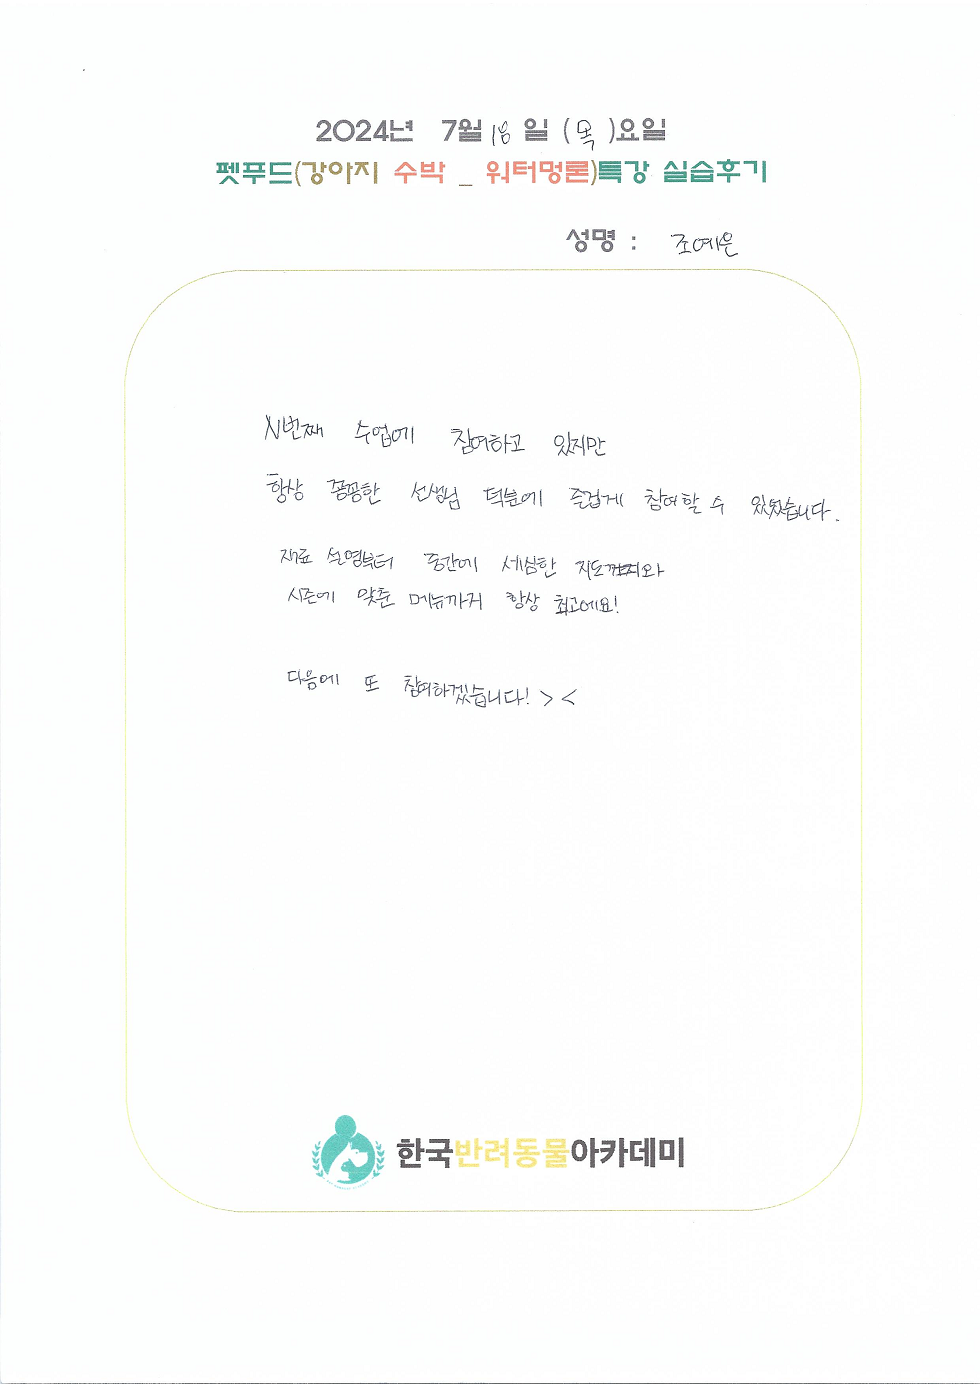 2024년 7월 18일 (목)요일
펫푸드(강아지 수박 _ 워터멍론)특강 실습후기
성명 : 조예은
N번째 수업에 참여하고 있지만
항상 꼼꼼한 선생님 덕분에 즐겁게 참여할 수 있었습니다.
재료 설명부터 중간에 세심한 지도와
시즌에 맞춘 메뉴까지 항상 최고에요!
다음에 또 참여하겠습니다! > <
한국반려동물아카데미